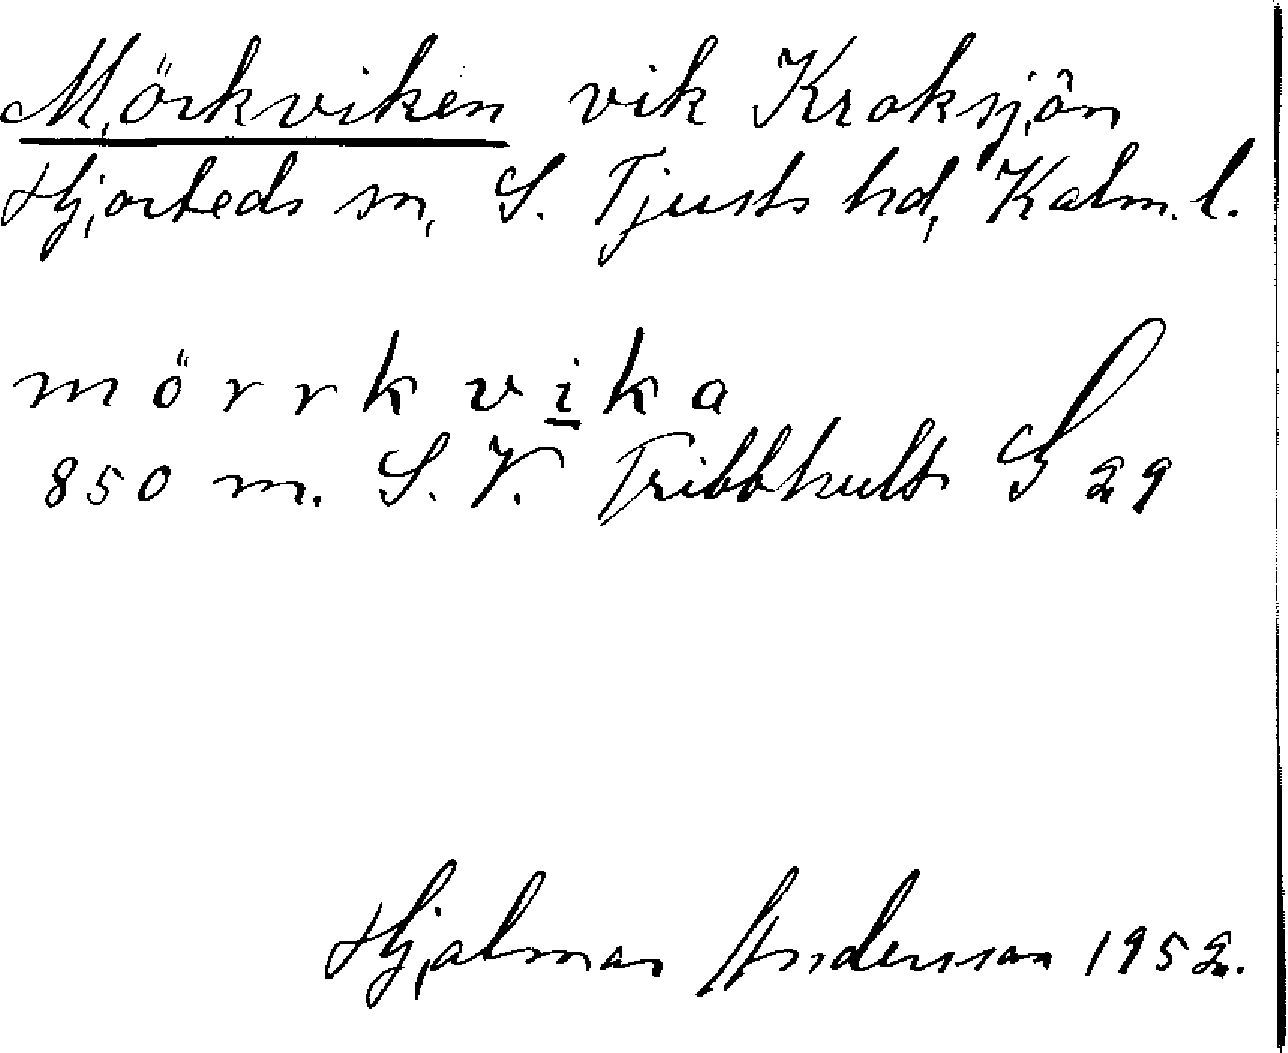 Mörkviken vik Kroksjön
Hjorteds sn, S. Tjusts hd, Kalm. l.
mörrkvika
850 m. S. V. Tribbhult S 29
Hjalmar Andersson 1952.